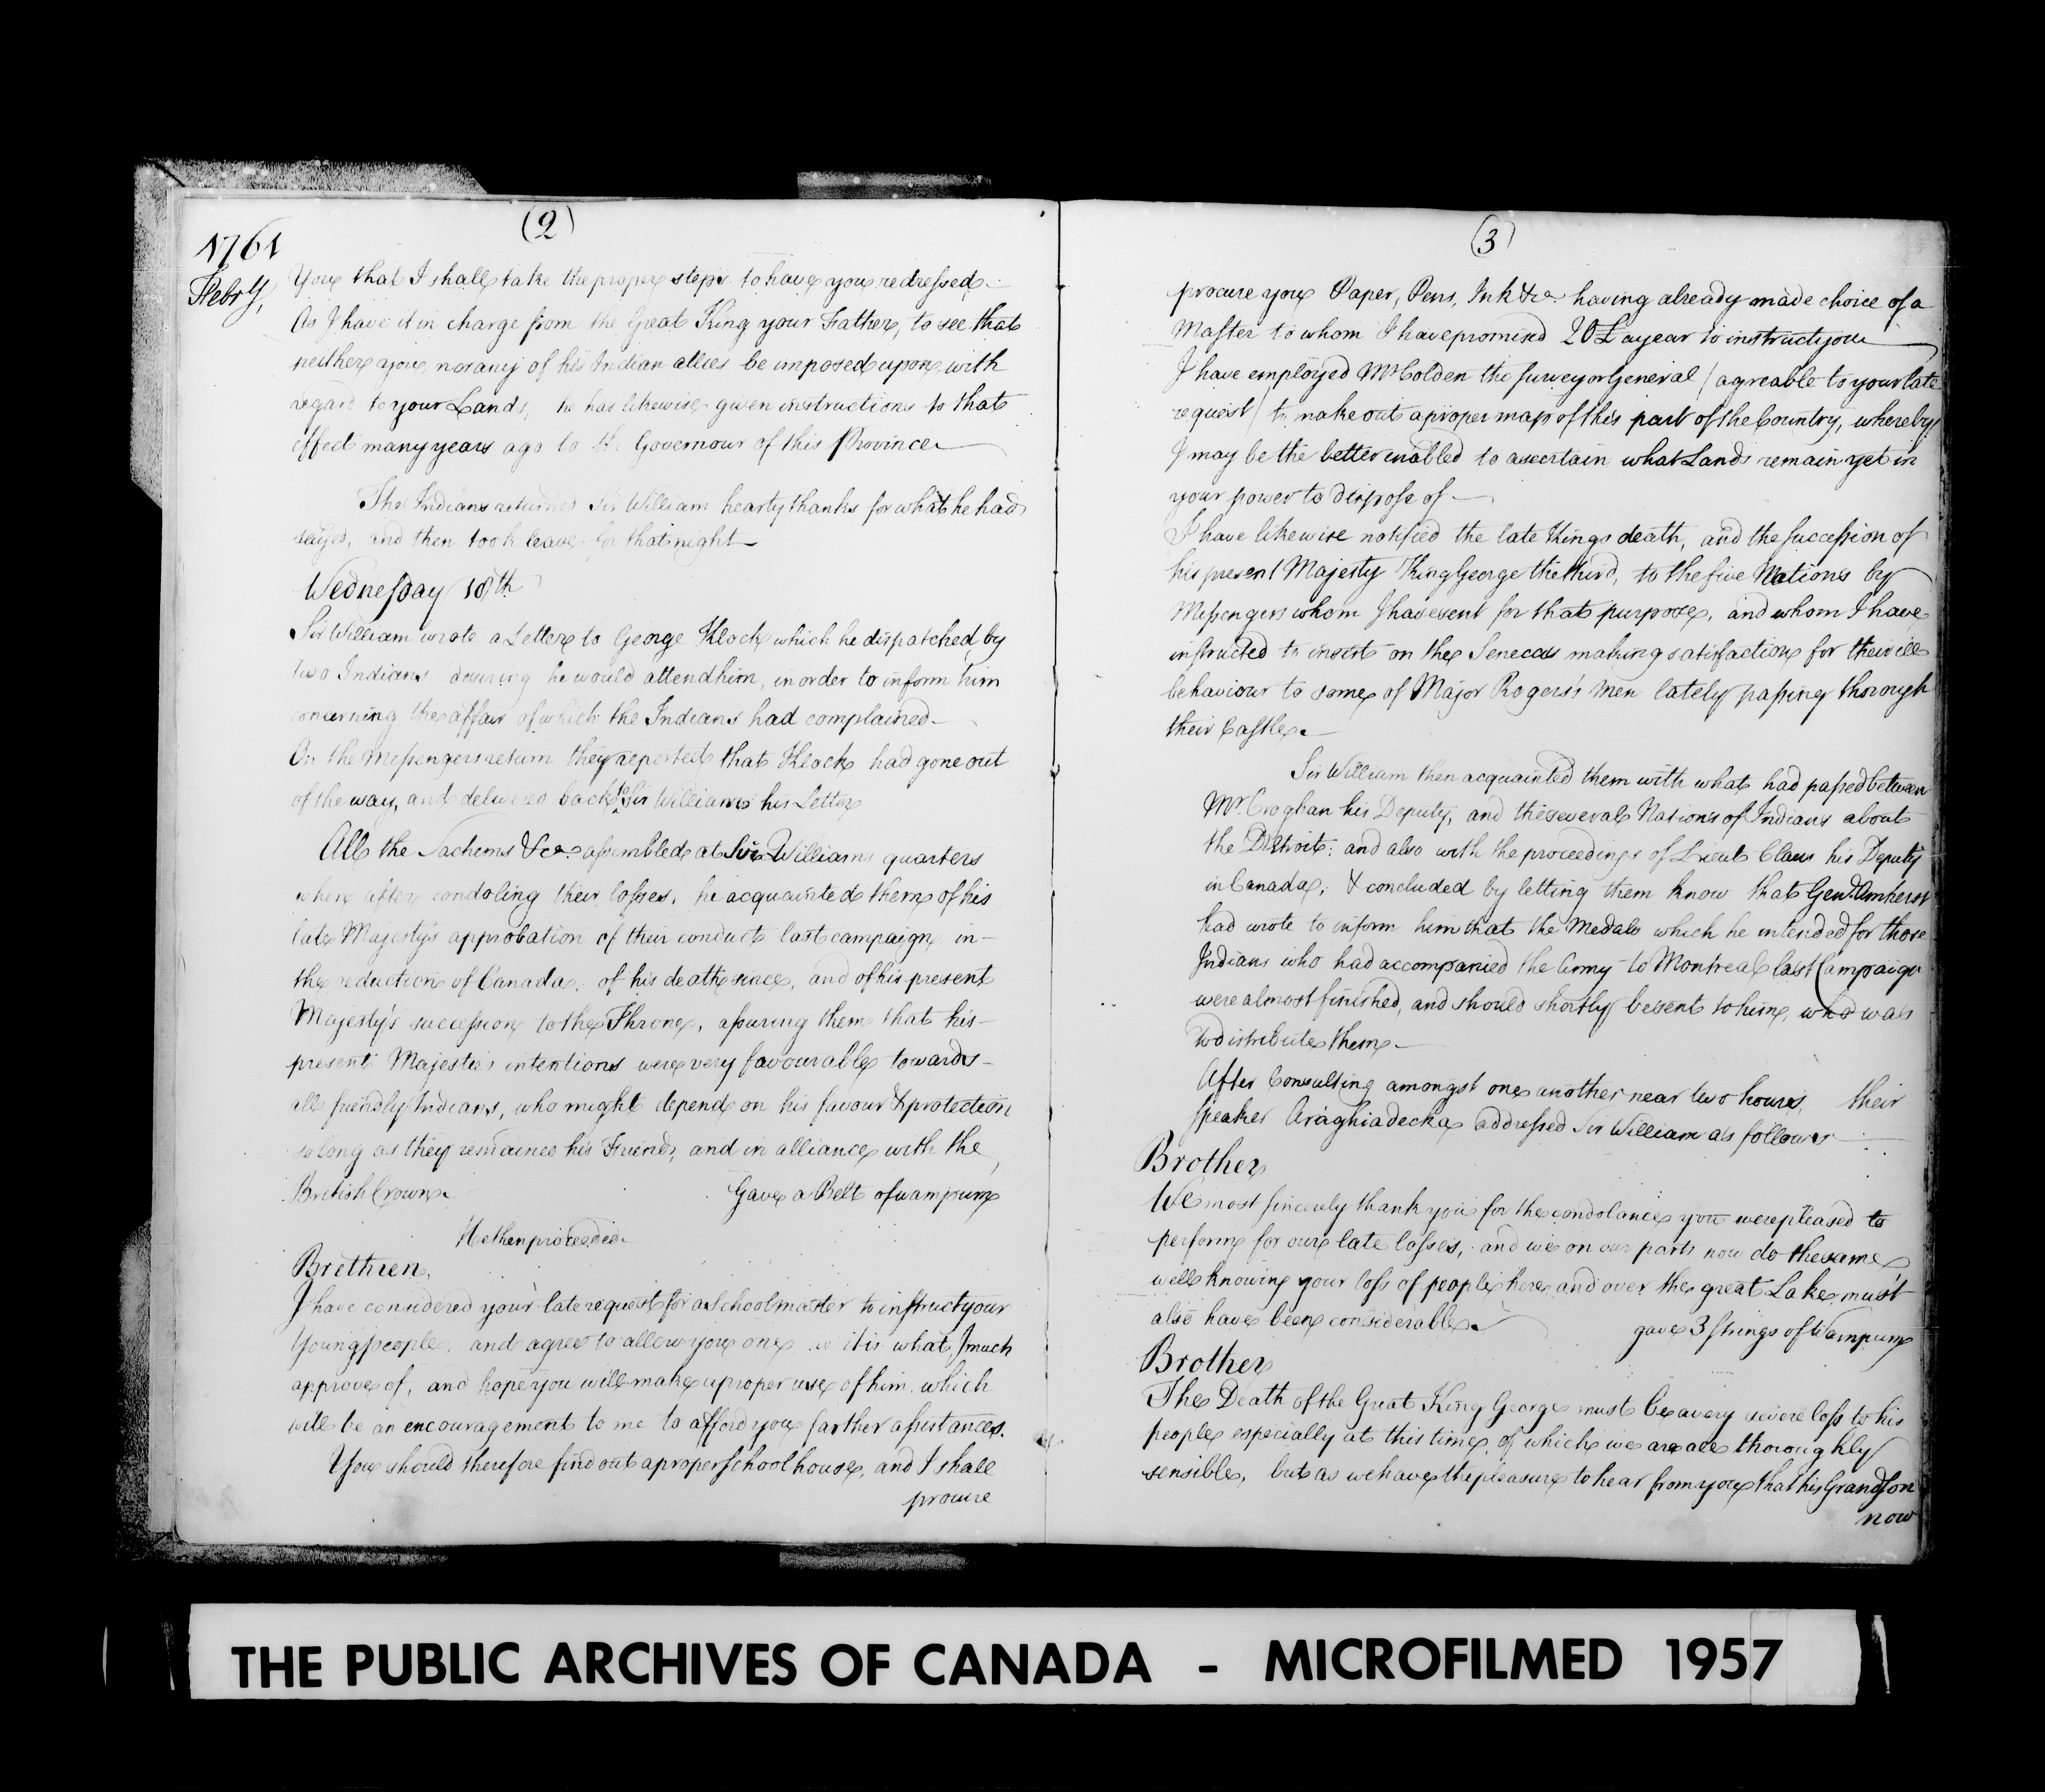 (2)
1761
Febry,
You that I shall take the proper steps to have you redressed.
As I have it in charge from the Great King your Father, to see that
neither you, nor any of his Indian allies be imposed upon with
regard to your Lands, he has likewise given instructions to that
effect many years ago to the Governour of this Province
The Indians returned Sir William hearty thanks for what he had
said, and then took leave for that night
Wednesday 18th
Sir William wrote a Letter to George Klock which he dispatched by
two Indians desiring he would attend him, in order to inform him
concerning the affair of which the Indians had complained.
On the Messengers return they reported that Klock had gone out
of the way, and delivered back to Sir William his Letter
All the Sachems &ca. assembled at Sir William quarters
where after condoling their losses, he acquainted them of his
late Majesty's approbation of their conduct last campaign in-
the reduction of Canada, of his death since, and of his present
Majesty's succession to the Throne, assuring them that his-
present Majestie's intentions were very favourable towards-
all friendly Indians, who might depend on his favour & protection
so long as they remained his Friends, and in alliance with the
British Crown. Gave a Belt of wampum
He then proceeded.
Brethren,
I have considered your late request for a Schoolmaster to instruct your
Young people, and agree to allow you one, as it is what I much
approve of, and hope you will make a proper use of him, which
will be an encouragement to me to afford you farther assistance.
You should therefore find out a proper school house, and I shall
procure
(3)
procure you Paper, Pens, Ink &ca having already made choice of a
Master to whom I have promised 20£ a year to instruct you
I have employed Mr Colden the surveyor General / agreable to your late
request / to make out a proper map of this part of the Country, whereby
I may be the better enabled to ascertain what Lands remain yet in
your power to dispose of
I have likewise notified the late Kings death, and the succession of
his present Majesty King George the third, to the five Nations by
Messengers whom I have sent for that purpose, and whom I have
instructed to insist on the Senecas making satisfaction for their ill
behaviour to some of Major Rogers's men lately passing thorough
their Castle.
Sir William then acquainted them with what had passed between
Mr. Croghan his Deputy, and the several Nations of Indians about
the Detroit; and also with the proceedings of Lieut Claus his Deputy
in Canada, & concluded by letting them know that Genl. Amherst
had wrote to inform him that the Medals which he intended for those
Indians who had accompanied the Army to Montreal last Campaign
were almost finished, and should shortly be sent to him, who was
to distribute them.
After Consulting amongst one another near two hours, their
speaker Araghiadecka addressed Sir William as follows
Brother
We most sincerely thank you for the condolance you were pleased to
perform for our late losses, and we on our parts now do the same
well knowing your loss of people here and over the great Lake must
also have been considerable. gave 3 strings of Wampum
Brother
The Death of the Great King George must be a very severe loss to his
people especially at this time, of which we are all thoroughly
sensible, but as we have the pleasure to hear from you that his Grandson
now
THE PUBLIC ARCHIVES OF CANADA - MICROFILMED 1957